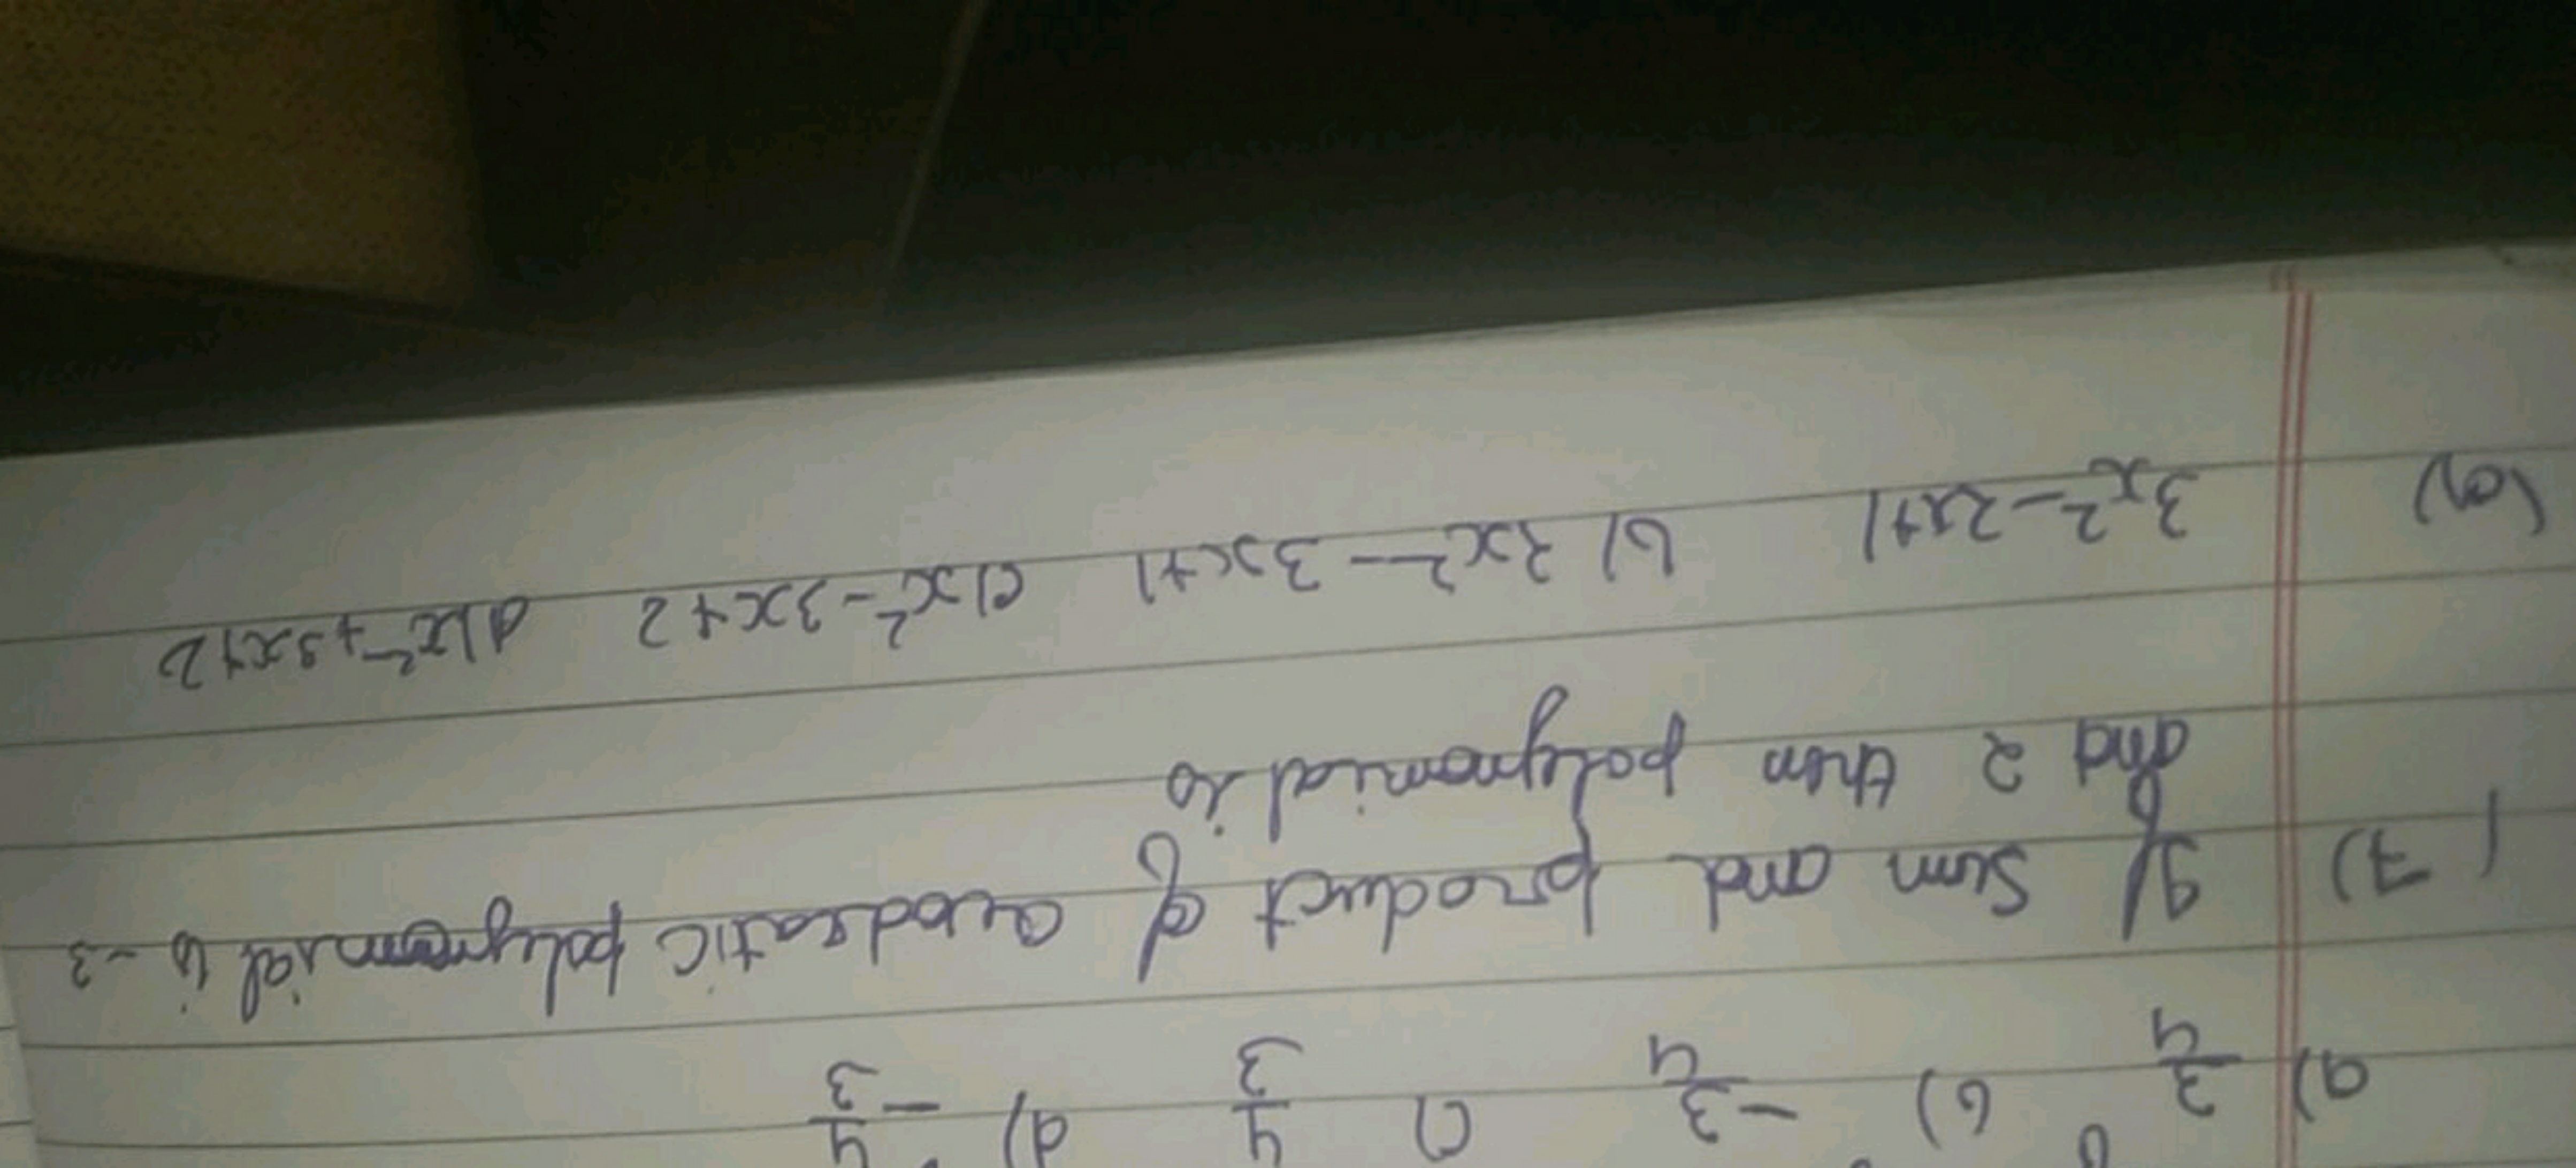 a) 3/4 b) -3/4 c) 4/3 d) -4/3
17) If sum and product of quadratic polynomial is -3
and 2 then polynomial is
(a) 3x²-2x+1 b) 2x²-3x+1 c) x²-3x+2 d) x²+3x+2